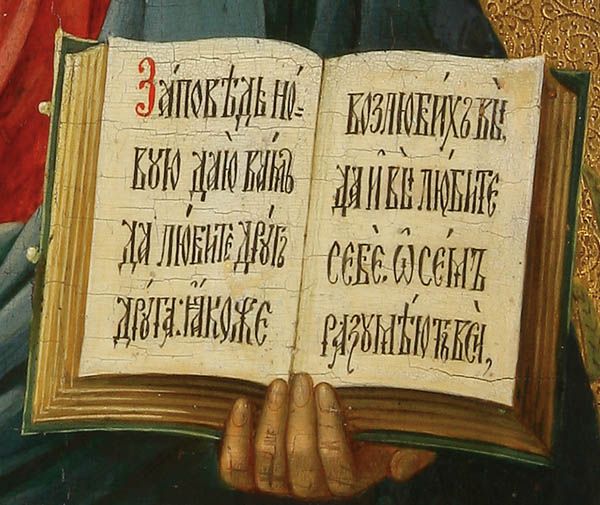 За́повѣдь но́-
вую даю̀ ва́мъ
да лю́бите дрꙋ́гъ
дрꙋ́га: ꙗ҆́коже
возлюби́хъ вы̀,
да и҆ вы̀ лю́бите
себѐ. Ѡ҆ се́мъ
разꙋмѣ́ютъ всѝ,